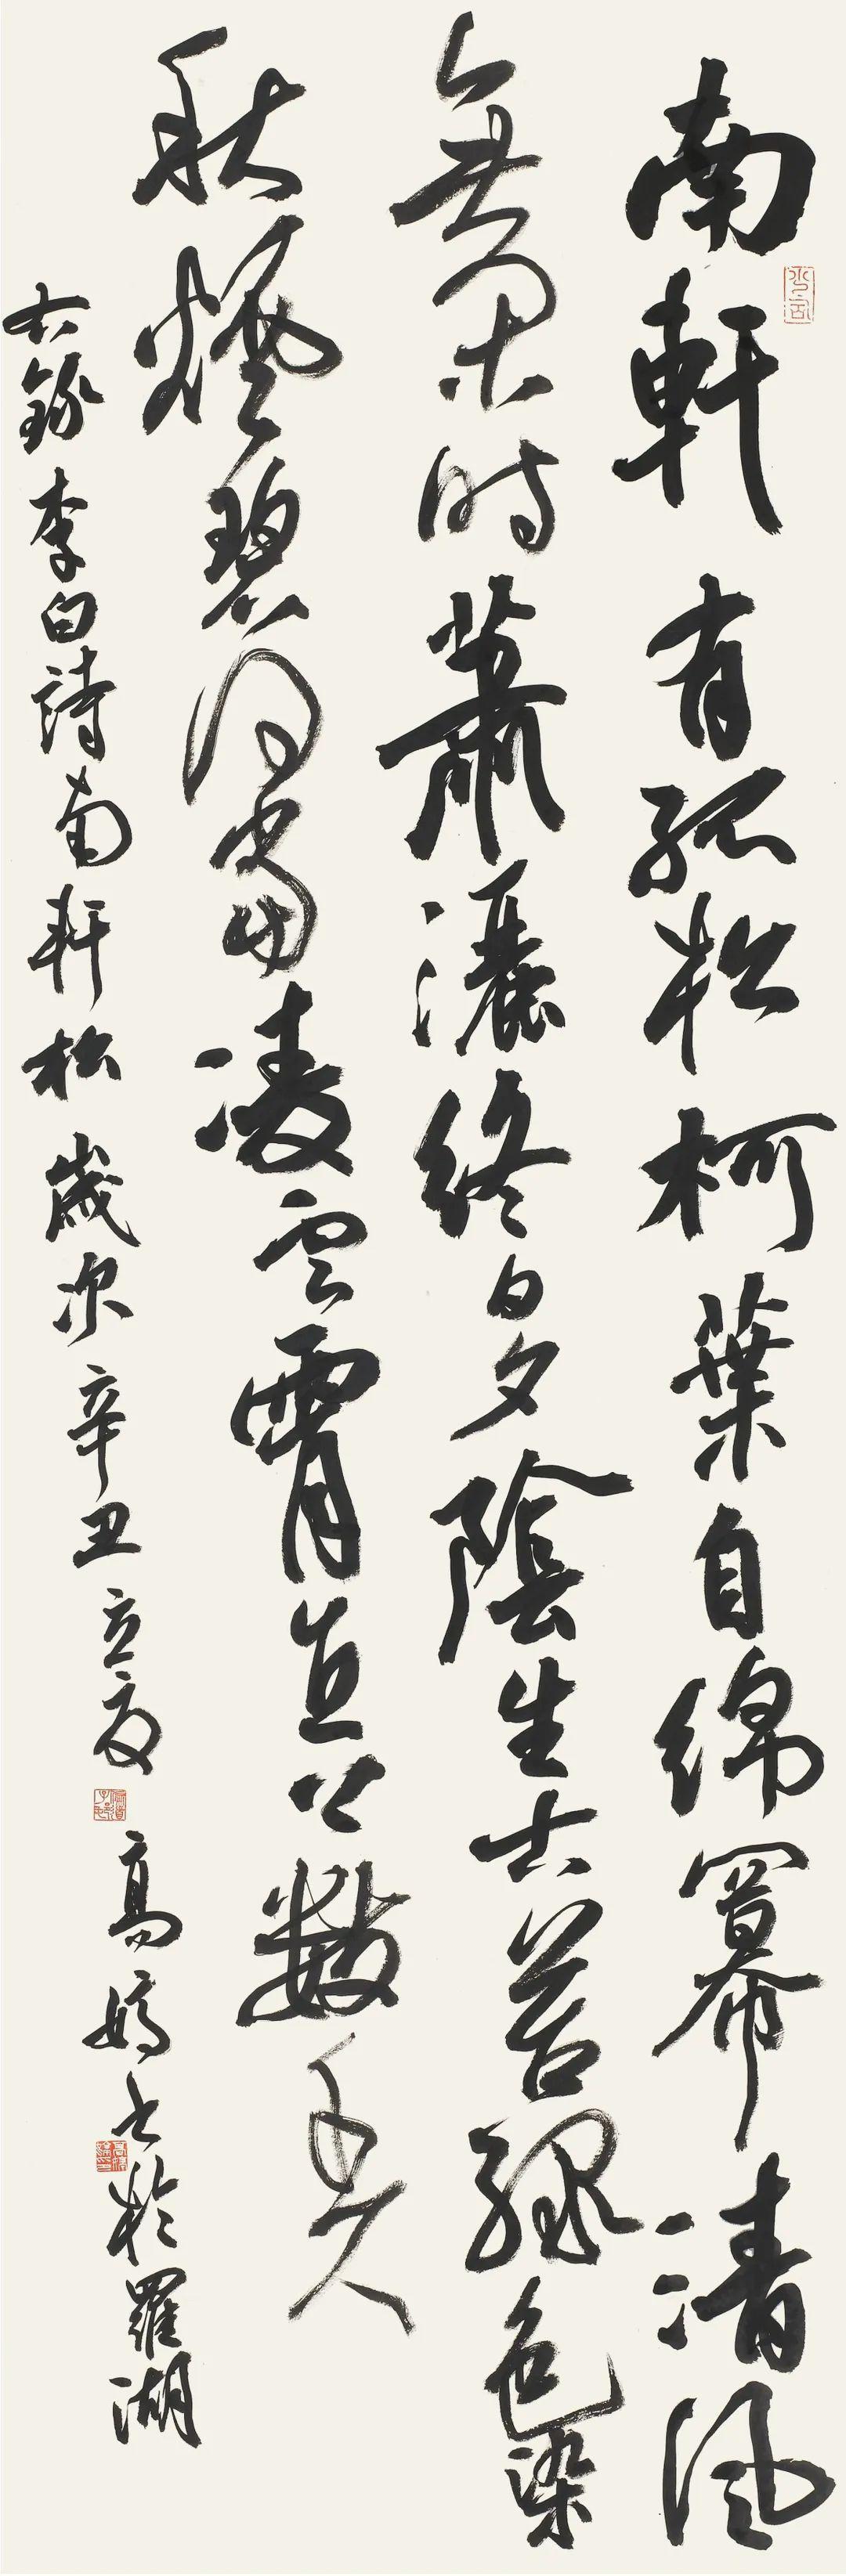 南軒有孤松柯葉自綿冪清風
無閑時蕭灑終日夕陰生古苔綠色染
秋煙碧何當凌雲霄直上數千尺
右錄李白詩南軒松歲次辛丑立夏高嬌書於羅湖